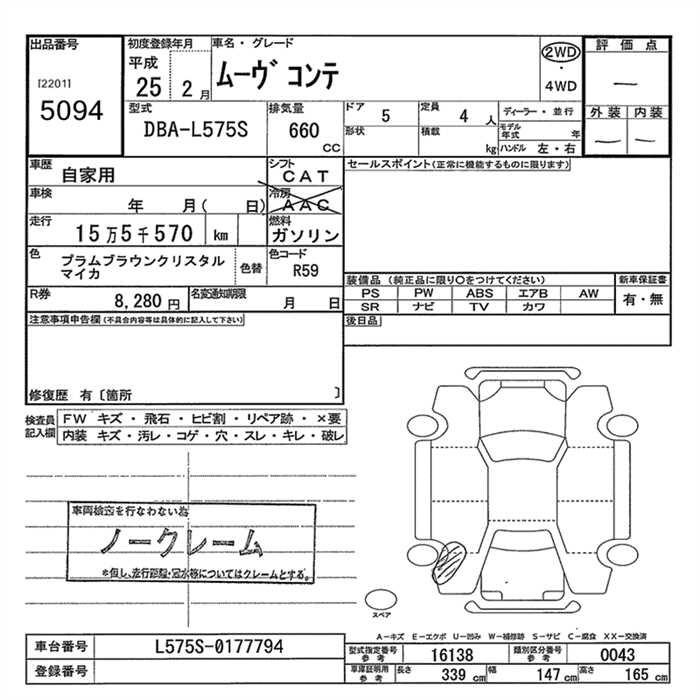 出品番号 初度登録年月 車名・グレード 2WD 評価点
[2201] 平成 ムーヴ コンテ ・ —
5094 25 2月 4WD
型式 排気量 ドア 5 定員 4人 ディーラー・並行 外装 内装
DBA-L575S 660 CC 形状 積載 kg モデル年式 年 — —
ハンドル 左・右
車歴 自家用 シフト CAT セールスポイント(正常に機能するものに限ります)
車検 年 月( 日) 冷房 AAC
走行 15万5千570 km 燃料 ガソリン
色 プラムブラウンクリスタル 色替 色コード
マイカ R59
装備品 (純正品に限り○をつけてください) 新車保証書
R券 8,280円 名変通知期限 月 日 PS PW ABS エアB AW 有・無
SR ナビ TV カワ
注意事項申告欄(不具合内容等は具体的に記入して下さい) 後日品
修復歴 有〔箇所 〕
検査員 FW キズ・飛石・ヒビ割・リペア跡・×要
記入欄 内装 キズ・汚レ・コゲ・穴・スレ・キレ・破レ
車両検査を行なわない為
ノークレーム
*但し、走行距離・冠水等についてはクレームとする。
スペア
A-キズ E-エクボ U-凹み W-補修跡 S-サビ C-腐食 XX-交換済
車台番号 L575S-0177794 型式指定番号 参考 16138 類別区分番号 参考 0043
登録番号 車庫証明用 参考 長さ 339 cm 幅 147 cm 高さ 165 cm